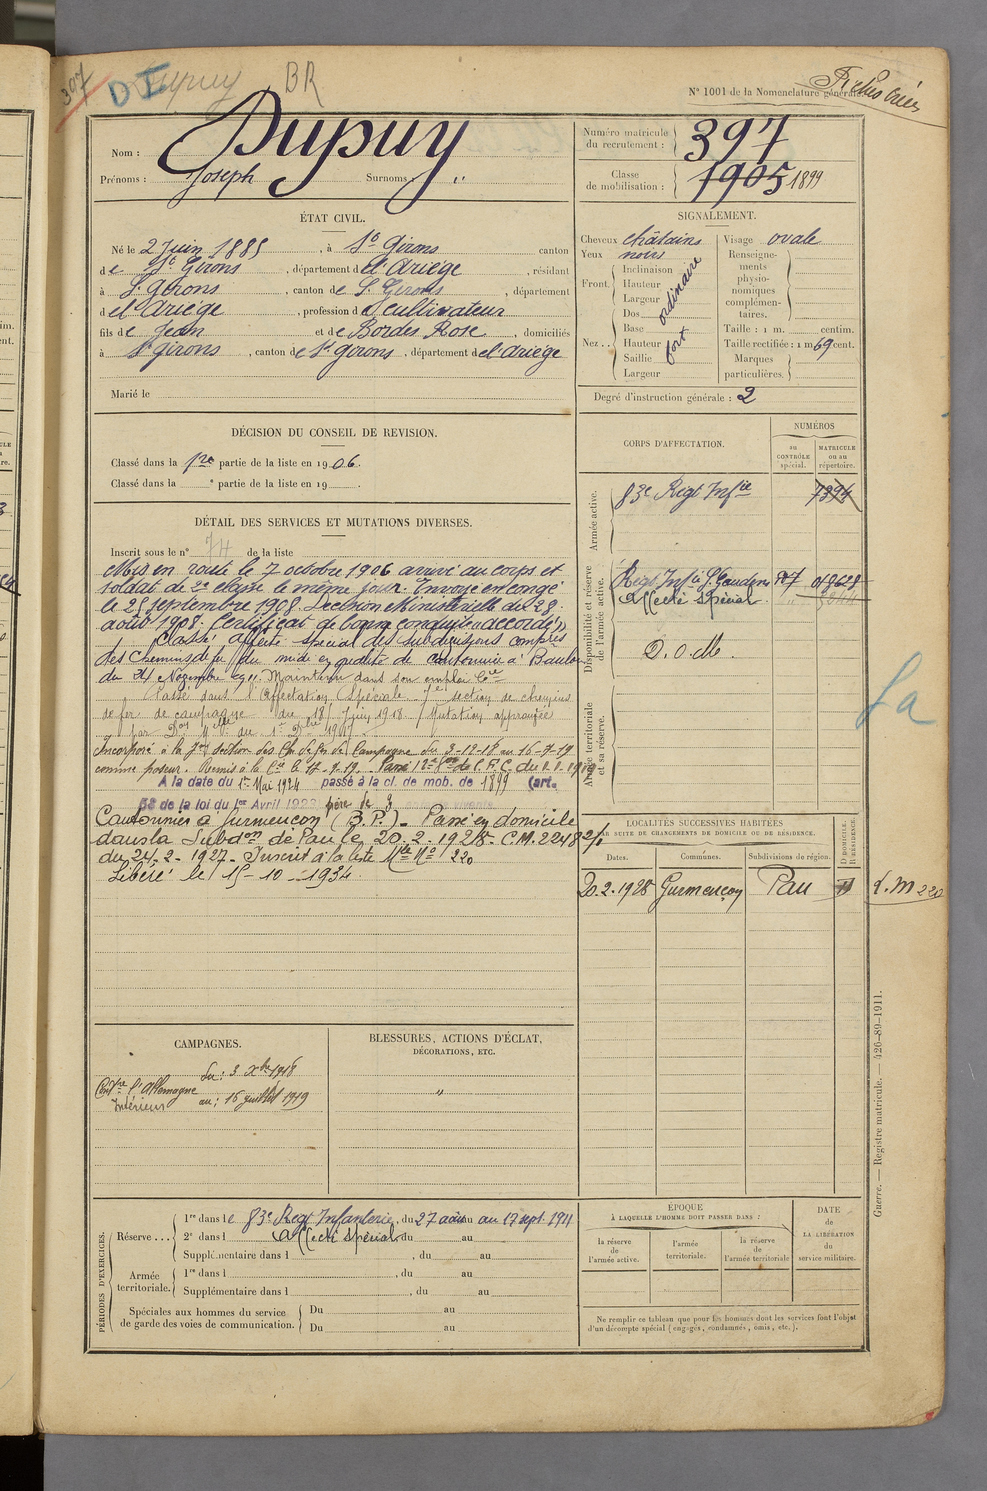 397 DI Dupuy BR
N° 1001 de la Nomenclature générale.
Fiches créées
Nom : Dupuy
Prénoms : Joseph Surnoms : "
Numéro matricule du recrutement : 397
Classe de mobilisation : 1905 1899
ÉTAT CIVIL.
Né le 2 Juin 1885, à St Girons canton
de St Girons, département de l'Ariège, résidant
à St Girons, canton de St Girons, département
de l'Ariège, profession de Cultivateur
fils de Jean et de Bordes Rose, domiciliés
à St Girons, canton de St Girons, département de l'Ariège
Marié le
SIGNALEMENT.
Cheveux châtains
Yeux noirs
Front.
Inclinaison
Hauteur
Largeur
ordinaire
Nez ..
Dos
Base
Hauteur
Saillie
Largeur
fort
Visage ovale
Renseignements physionomiques complémentaires.
Taille : 1 m. centim.
Taille rectifiée : 1 m 69 cent.
Marques particulières.
Degré d'instruction générale : 2
DÉCISION DU CONSEIL DE REVISION.
Classé dans la 1re partie de la liste en 1906.
Classé dans la e partie de la liste en 19
DÉTAIL DES SERVICES ET MUTATIONS DIVERSES.
Inscrit sous le n° 74 de la liste
Mis en route le 7 octobre 1906 arrivé au corps et
soldat de 2e classe le même jour. Envoyé en congé
le 25 septembre 1908. Décision Ministérielle du 28
août 1908. Certificat de bonne conduite "accordé".
Classé affecté spécial des subdivisions complres
des Chemins de fer du midi en qualité de cantonnier à Baulou
du 24 Novembre 1911. Maintenu dans son emploi Cie
Passé dans l'Affectation Spéciale 7e section de chemins
de fer de campagne du 18 Juin 1918 (Mutation approuvée
par Don Melle du 1er Dbre 1917)
Incorporé à la 7me section des Ch. de fer de Campagne du 3-12-18 au 16-7-19
comme poseur. Remis à la Cie le 17-7-19.
A la date du 1er Mai 1924 passé à la cl. de mob. de 1899 (art.
58 de la loi du 1er Avril 1923 père de 3
Cantonnier à Gurmençon (B.P.) - Passé en domicile
dans la Subdon de Pau le 20.2.1928 - C.M. 22482/1
du 24.2-1927 - Inscrit à la liste Mle No 220
Libéré le 15-10-1934
CORPS D'AFFECTATION.
NUMÉROS
au CONTRÔLE spécial.
MATRICULE ou au répertoire.
Armée active.
83e Régt Infie 7394
Disponibilité et réserve de l'armée active.
Régt Infie St Gaudens
Affecté Spécial
D.O.M.
Armée territoriale et sa réserve.
LOCALITÉS SUCCESSIVES HABITÉES
PAR SUITE DE CHANGEMENTS DE DOMICILE OU DE RÉSIDENCE.
Dates. Communes. Subdivisions de région. D. DOMICILE. R. RÉSIDENCE.
20.2.1928 Gurmençon Pau D
L.M 220
La
CAMPAGNES.
Contre l'Allemagne
Intérieur
du : 3 Xbre 1918
au : 16 juillet 1919
BLESSURES, ACTIONS D'ÉCLAT,
DÉCORATIONS, ETC.
"
PÉRIODES D'EXERCICES.
Réserve ...
1re dans le 83e Régt Infanterie, du 27 août au 17 sept. 1911
2e dans l Affecté Spécial du au
Supplémentaire dans l , du au
Armée territoriale.
1re dans l , du au
Supplémentaire dans l , du au
Spéciales aux hommes du service de garde des voies de communication.
Du au
Du au
ÉPOQUE
À LAQUELLE L'HOMME DOIT PASSER DANS :
la réserve de l'armée active.
l'armée territoriale.
la réserve de l'armée territoriale
DATE de LA LIBÉRATION du service militaire.
Ne remplir ce tableau que pour les hommes dont les services font l'objet
d'un décompte spécial (engagés, condamnés, omis, etc.).
Guerre. — Registre matricule. — 426-89-1911.